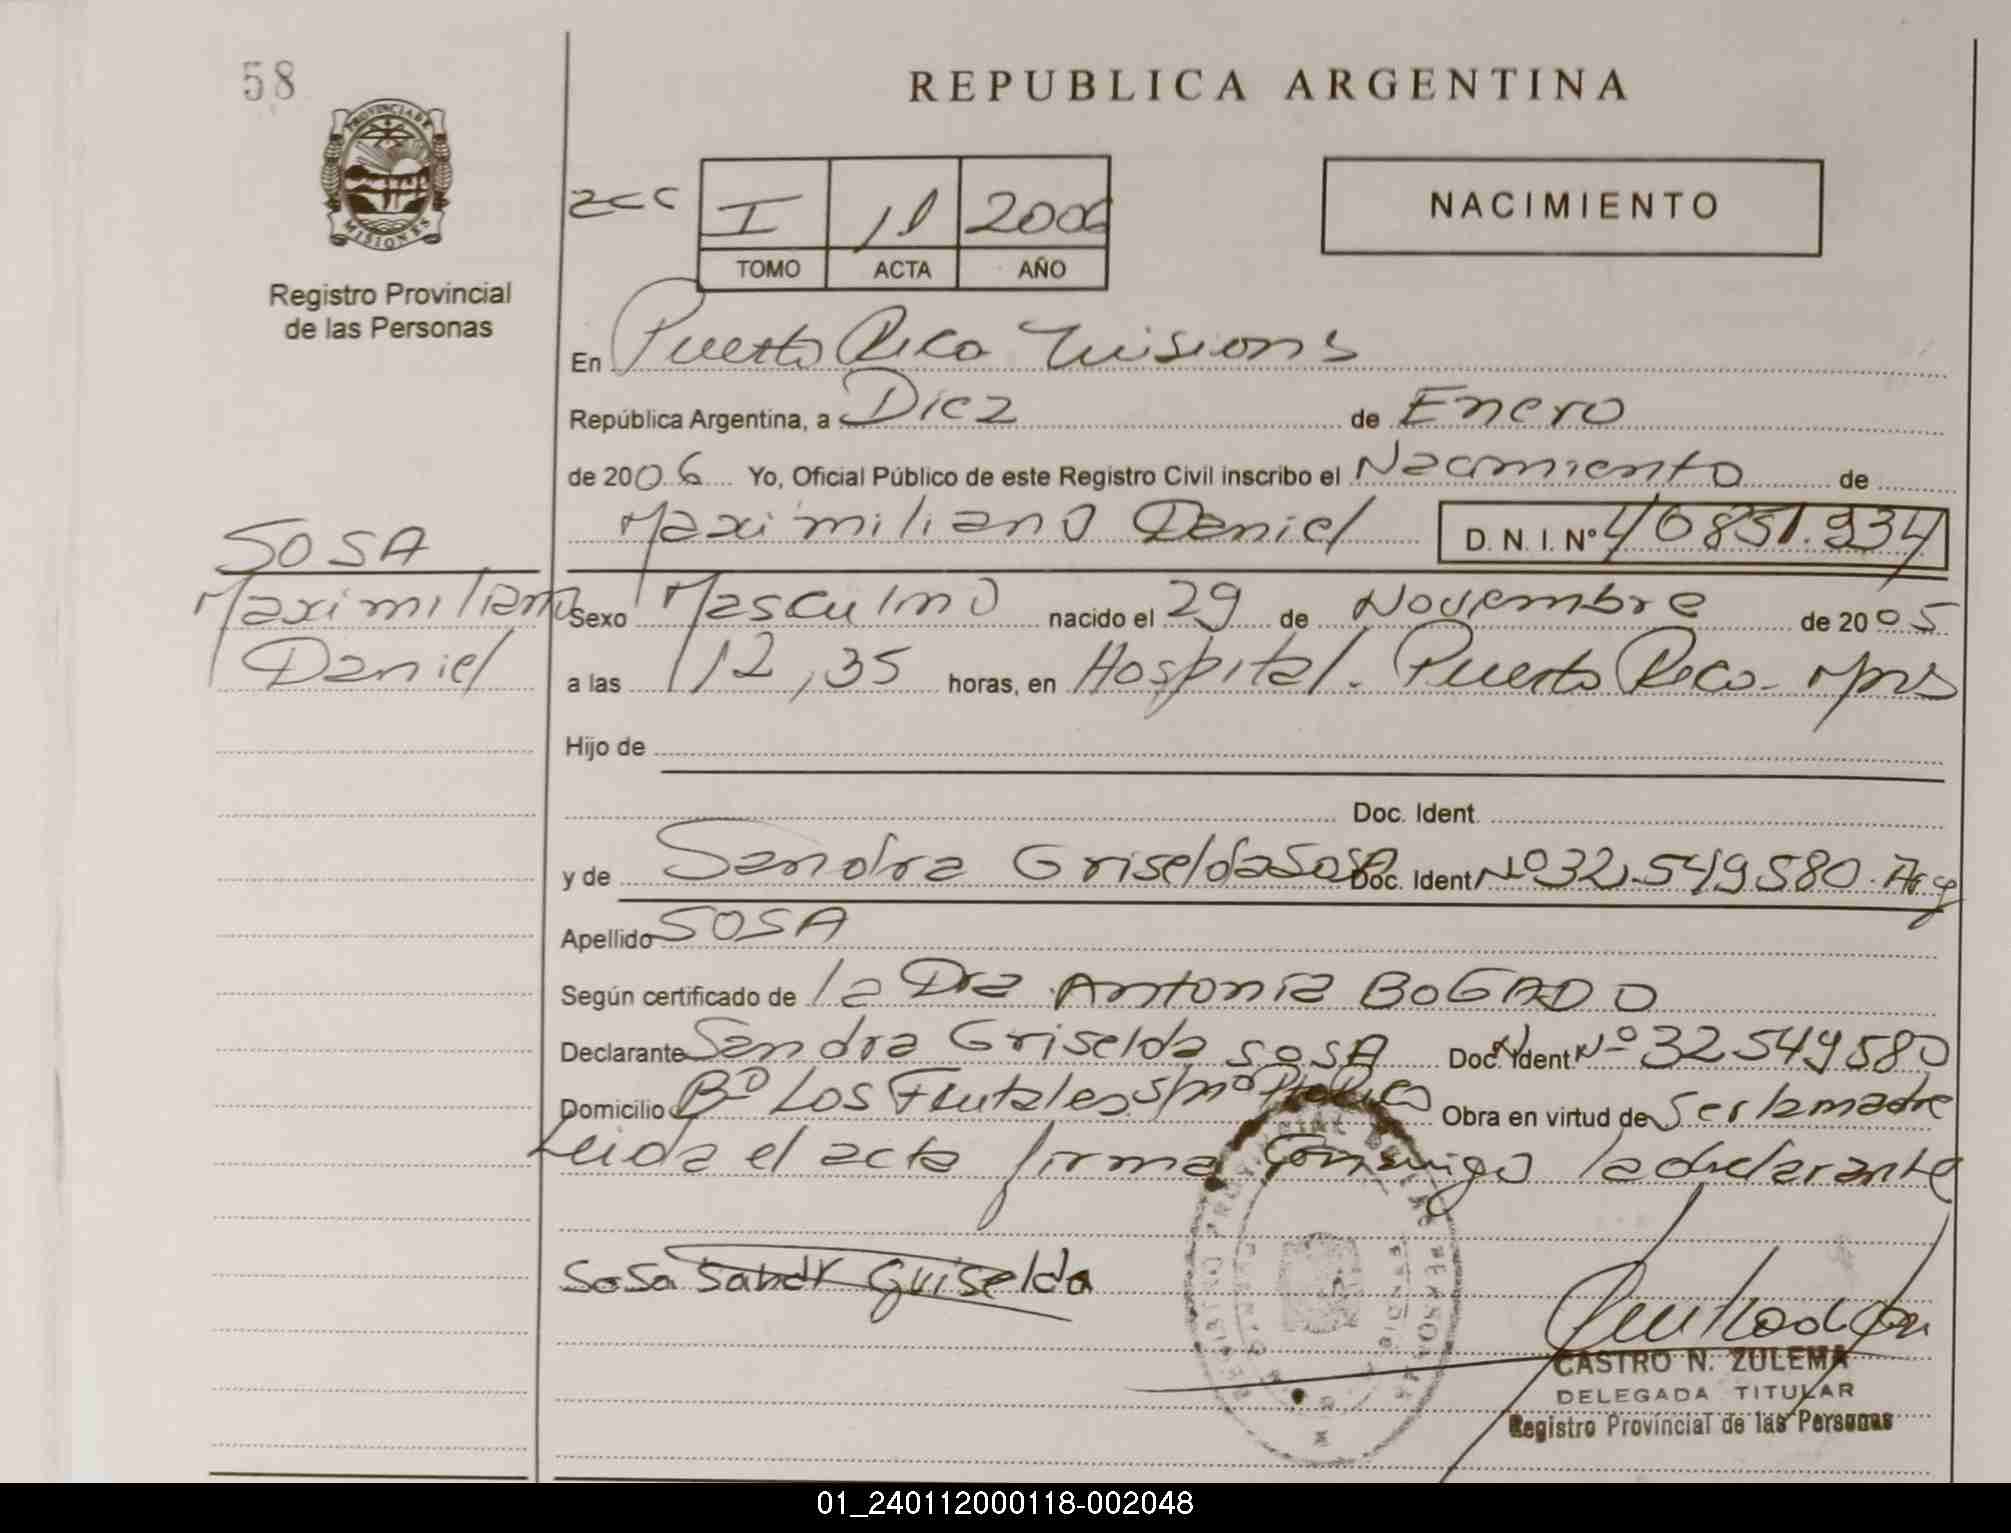 58
REPUBLICA ARGENTINA
PROVINCIA DE
MISIONES
Registro Provincial
de las Personas
I 11 2006
TOMO ACTA AÑO
NACIMIENTO
En Puerto Rico Misions
República Argentina, a Diez de Enero
de 2006 Yo, Oficial Público de este Registro Civil inscribo el Nacimiento de
Maximiliano Daniel D. N. I. Nº 46851.934
SOSA
Maximiliano
Daniel
Sexo Masculino nacido el 29 de Noviembre de 2005
a las 12,35 horas, en Hospital. Puerto Rico - Mnes
Hijo de
Doc. Ident.
y de Sandra Griselda Sosa Doc. Ident Nº 32.549.580. Arg
Apellido SOSA
Según certificado de la Dra Antonia BOGADO
Declarante Sandra Griselda SOSA Doc. Ident Nº 32549580
Domicilio Bº Los Frutales s/nº Pto Rico Obra en virtud de Ser la madre
Leida el acta firma Conmigo la declarante
Sosa Sandr Griselda
CASTRO N. ZULEMA
DELEGADA TITULAR
Registro Provincial de las Personas
01_240112000118-002048